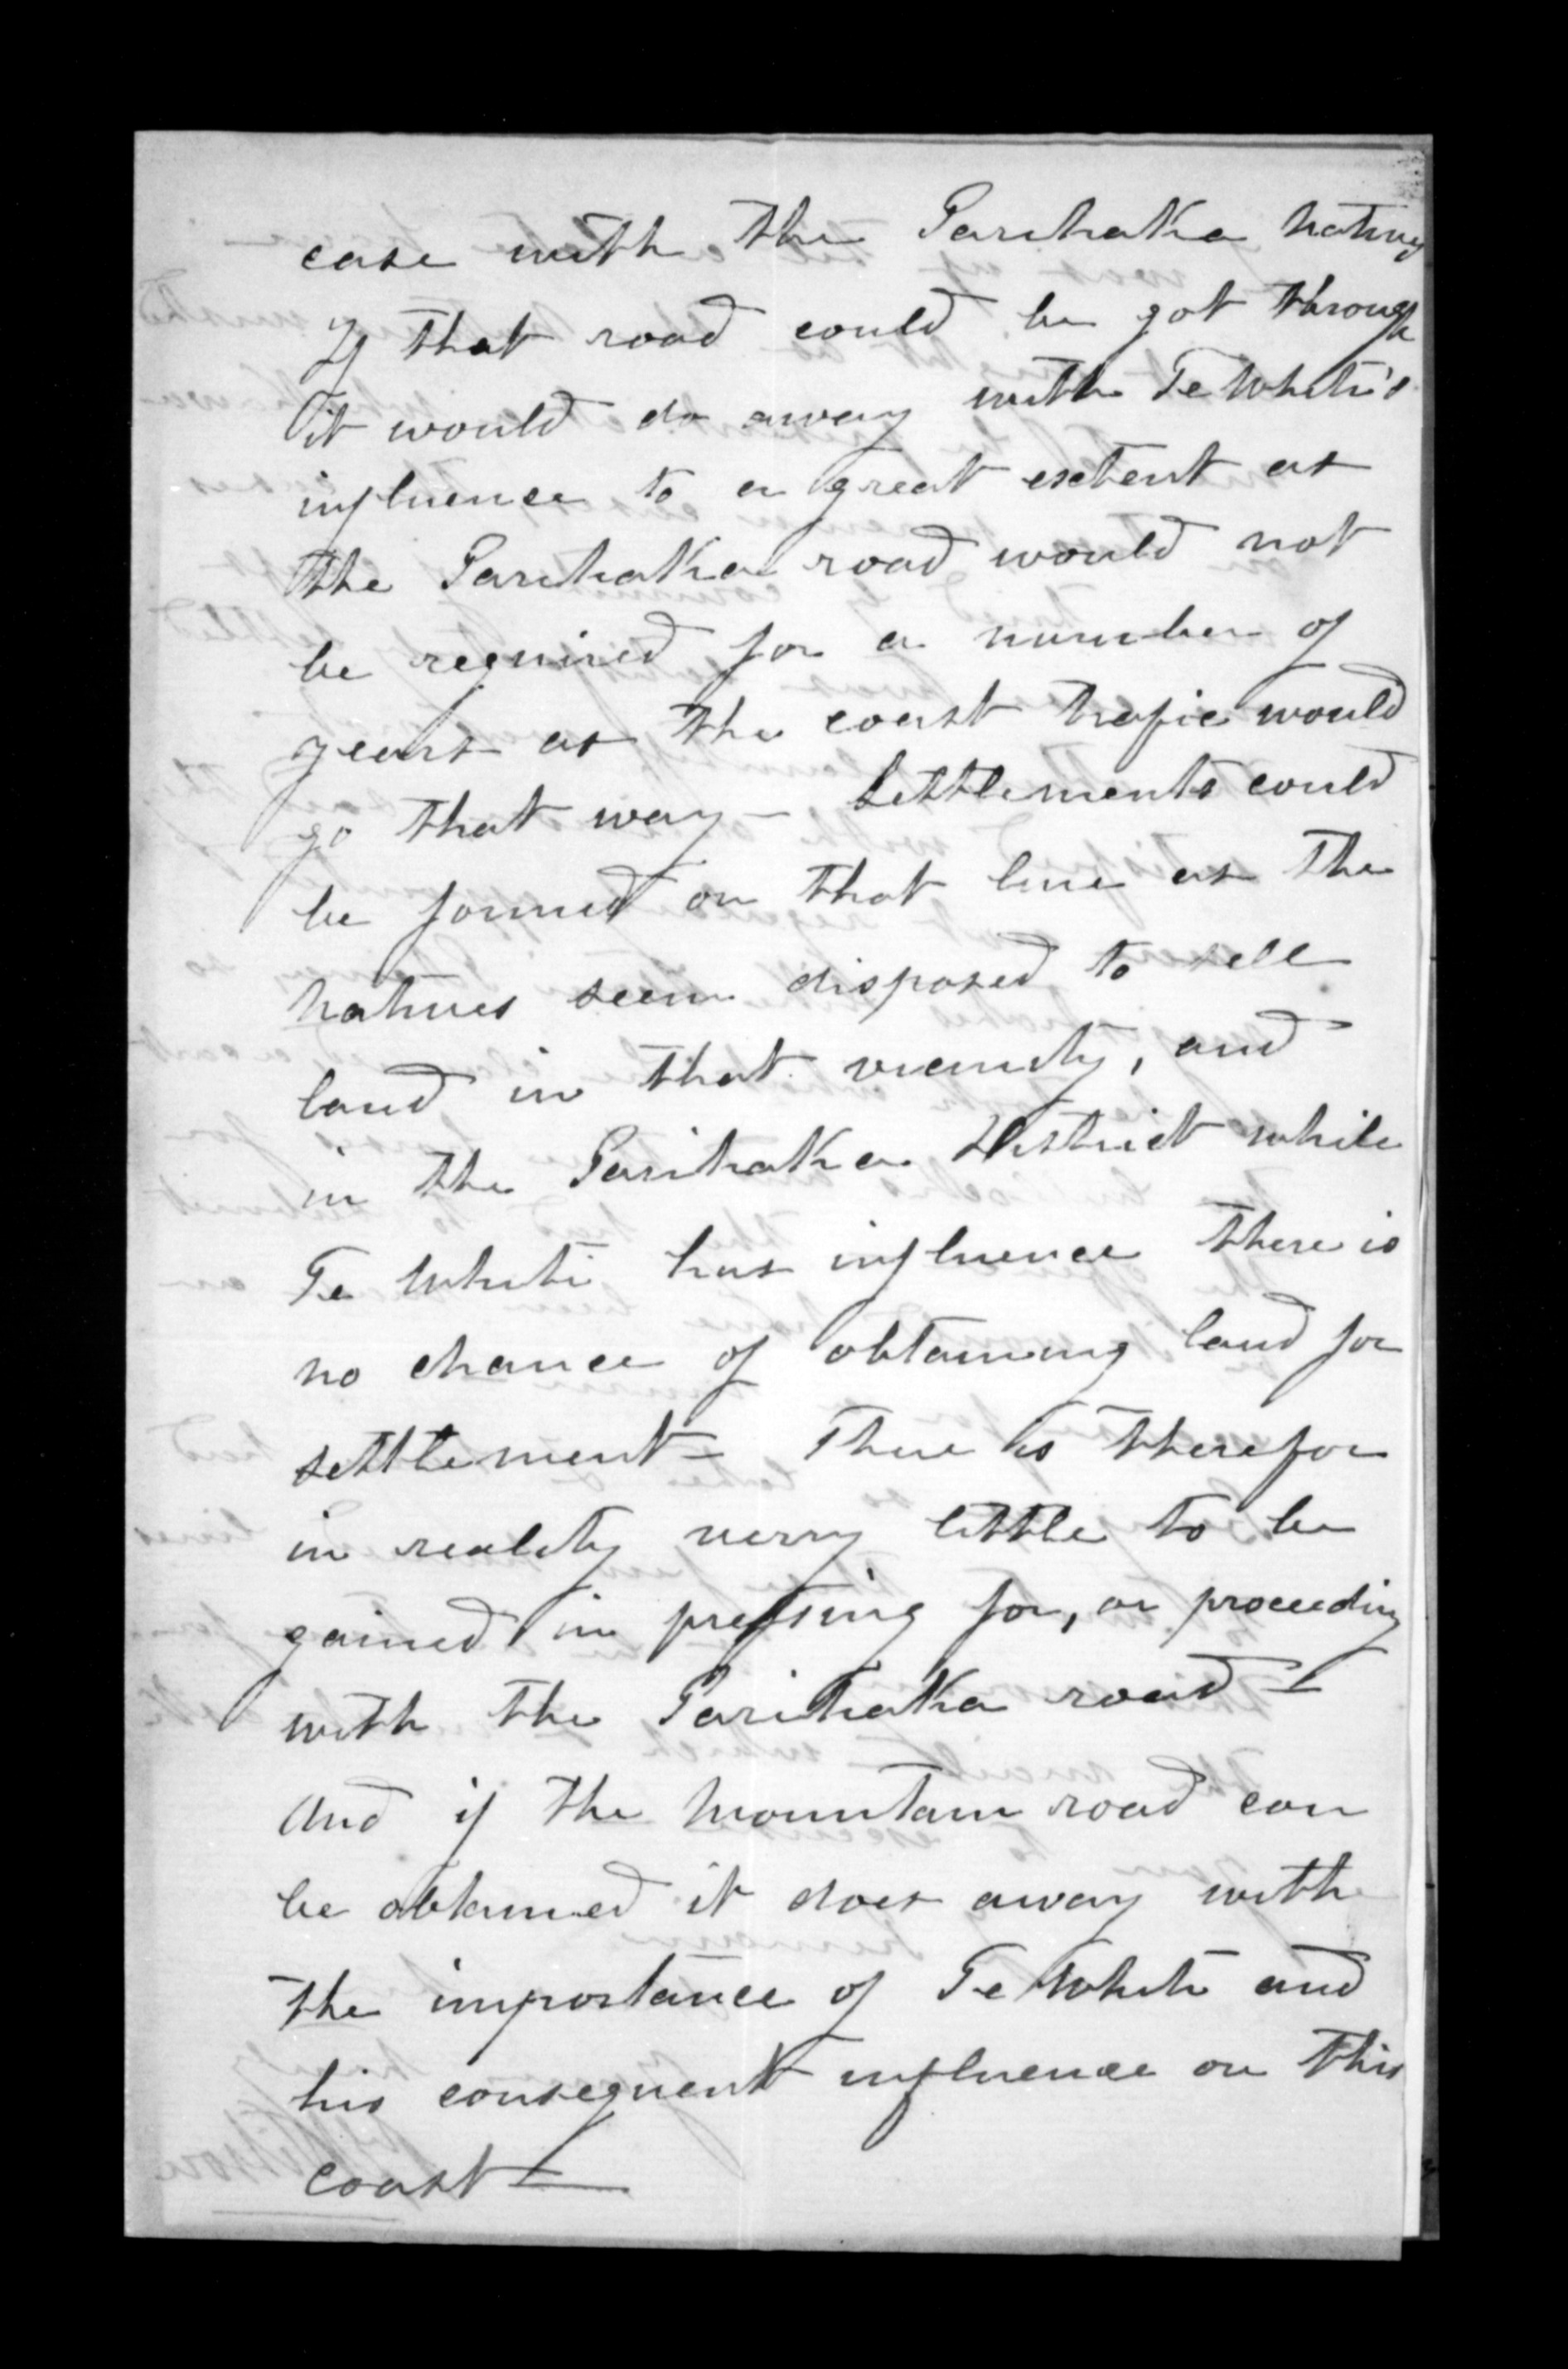 case with the Parihaka Natives
If that road could be got through
it would do away with Te Whiti's
influence to a great extent as
the Parihaka road would not
be required for a number of
years as the coast trafic would
go that way – Settlements could
be formed on that line as the
Natives seem disposed to sell
land in that vicinity, and
in the Parihaka District while
Te Whiti has influence there is
no chance of obtaining land for
settlement – There is therefor
in reality verry little to be
gained in pressing for, or proceeding
with the Parihaka road –
And if the Mountain road can
be obtained it does away with
the importance of Te Whiti and
his consequent influence on this
coast –